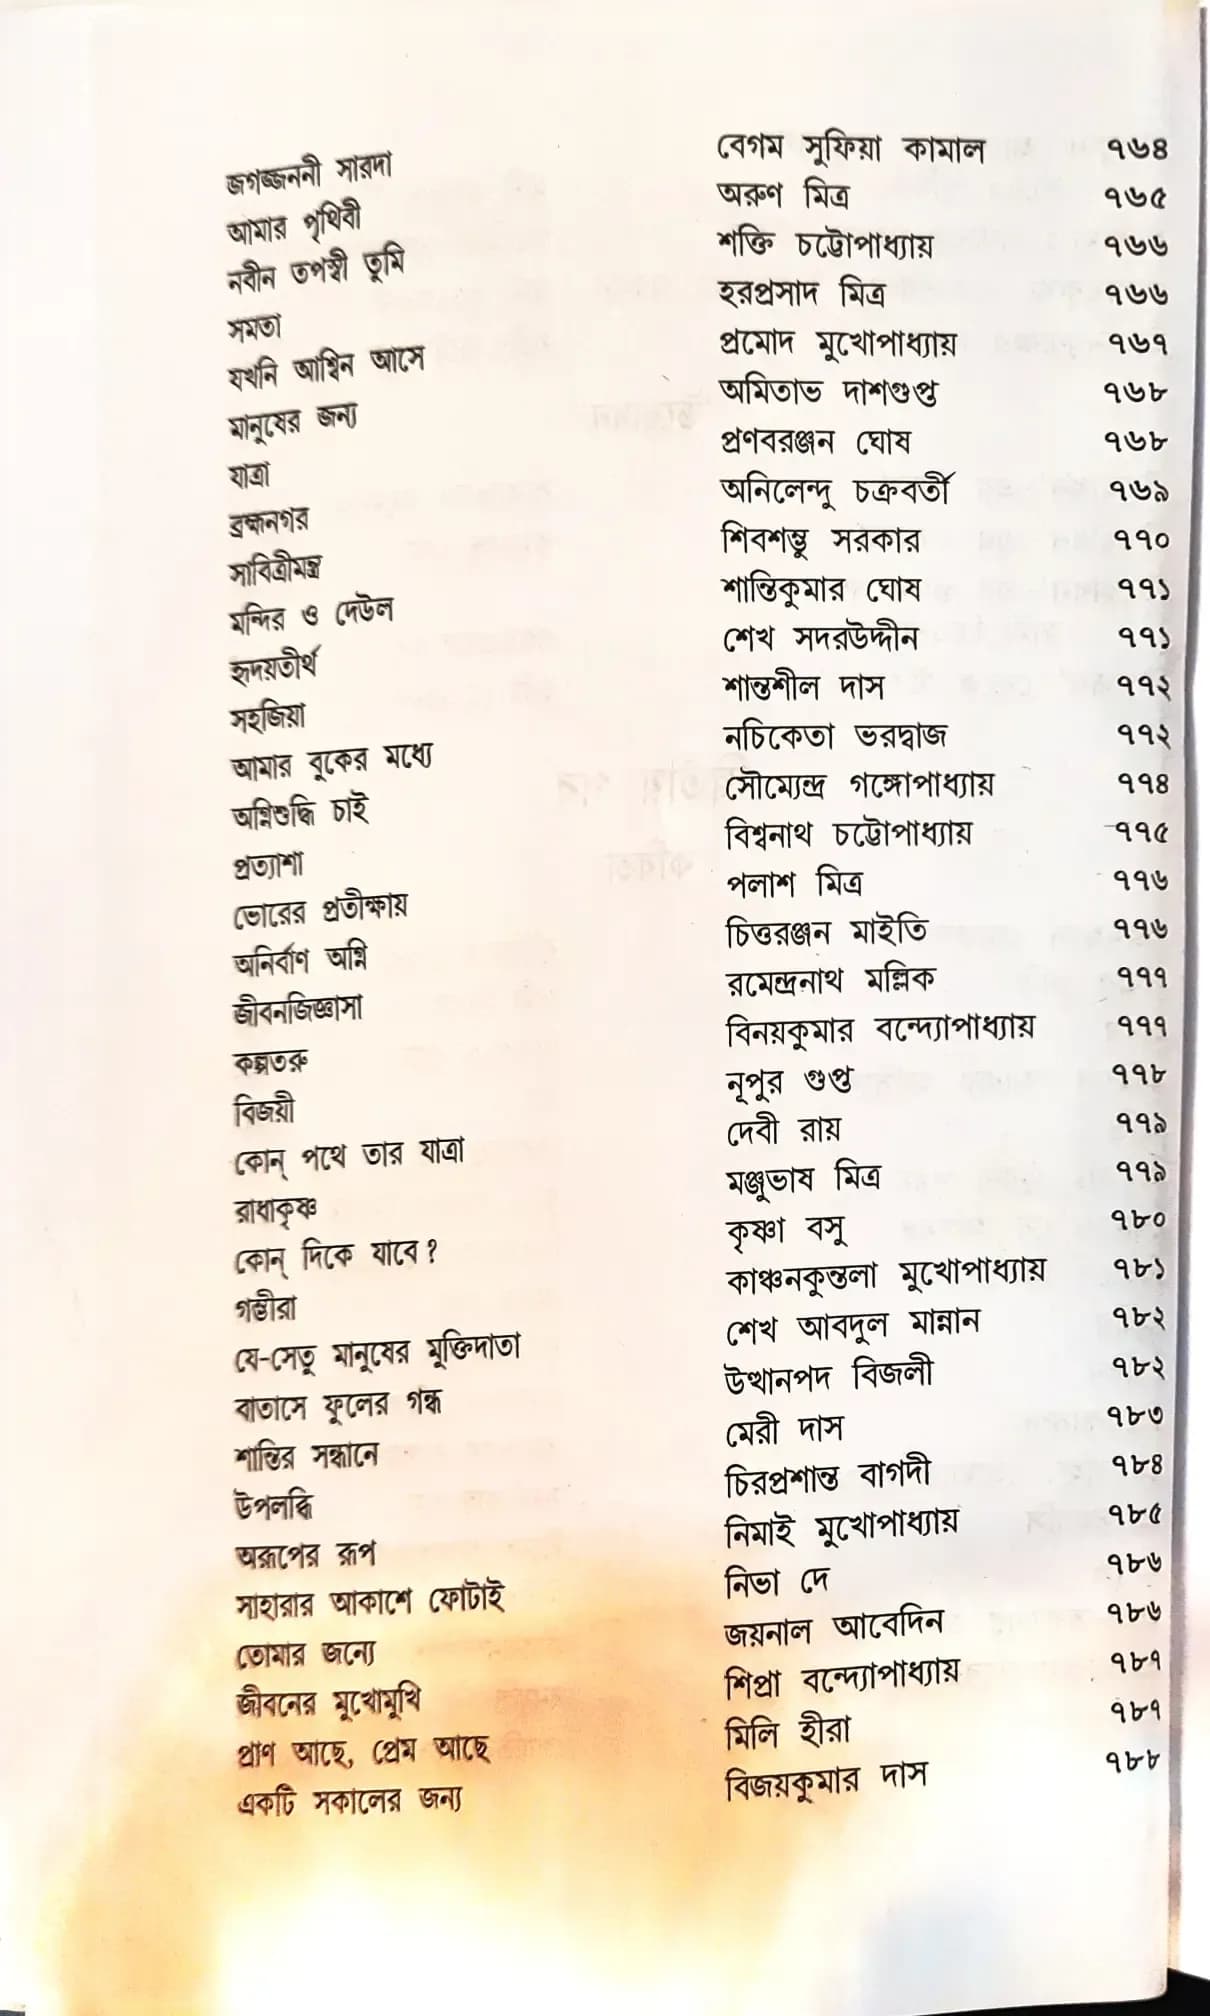 জগজ্জননী সারদা বেগম সুফিয়া কামাল ৭৬৪
আমার পৃথিবী অরুণ মিত্র ৭৬৫
নবীন তপস্বী তুমি শক্তি চট্টোপাধ্যায় ৭৬৬
সমতা হরপ্রসাদ মিত্র ৭৬৬
যখনি আশ্বিন আসে প্রমোদ মুখোপাধ্যায় ৭৬৭
মানুষের জন্য অমিতাভ দাশগুপ্ত ৭৬৮
যাত্রা প্রণবরঞ্জন ঘোষ ৭৬৮
ব্রহ্মনগর অনিলেন্দু চক্রবর্তী ৭৬৯
সাবিত্রীমন্ত্র শিবশম্ভু সরকার ৭৭০
মন্দির ও দেউল শান্তিকুমার ঘোষ ৭৭১
হৃদয়তীর্থ শেখ সদরউদ্দীন ৭৭১
সহজিয়া শান্তশীল দাস ৭৭২
আমার বুকের মধ্যে নচিকেতা ভরদ্বাজ ৭৭২
অগ্নিশুদ্ধি চাই সৌম্যেন্দ্র গঙ্গোপাধ্যায় ৭৭৪
প্রত্যাশা বিশ্বনাথ চট্টোপাধ্যায় ৭৭৫
ভোরের প্রতীক্ষায় পলাশ মিত্র ৭৭৬
অনির্বাণ অগ্নি চিত্তরঞ্জন মাইতি ৭৭৬
জীবনজিজ্ঞাসা রমেন্দ্রনাথ মল্লিক ৭৭৭
কল্পতরু বিনয়কুমার বন্দ্যোপাধ্যায় ৭৭৭
বিজয়ী নূপুর গুপ্ত ৭৭৮
কোন্ পথে তার যাত্রা দেবী রায় ৭৭৯
রাধাকৃষ্ণ মঞ্জুভাষ মিত্র ৭৭৯
কোন্ দিকে যাবে? কৃষ্ণা বসু ৭৮০
গম্ভীরা কাঞ্চনকুন্তলা মুখোপাধ্যায় ৭৮১
যে-সেতু মানুষের মুক্তিদাতা শেখ আবদুল মান্নান ৭৮২
বাতাসে ফুলের গন্ধ উত্থানপদ বিজলী ৭৮২
শান্তির সন্ধানে মেরী দাস ৭৮৩
উপলব্ধি চিরপ্রশান্ত বাগদী ৭৮৪
অরূপের রূপ নিমাই মুখোপাধ্যায় ৭৮৫
সাহারার আকাশে ফোটাই নিভা দে ৭৮৬
তোমার জন্যে জয়নাল আবেদিন ৭৮৬
জীবনের মুখোমুখি শিপ্রা বন্দ্যোপাধ্যায় ৭৮৭
প্রাণ আছে, প্রেম আছে মিলি হীরা ৭৮৭
একটি সকালের জন্য বিজয়কুমার দাস ৭৮৮